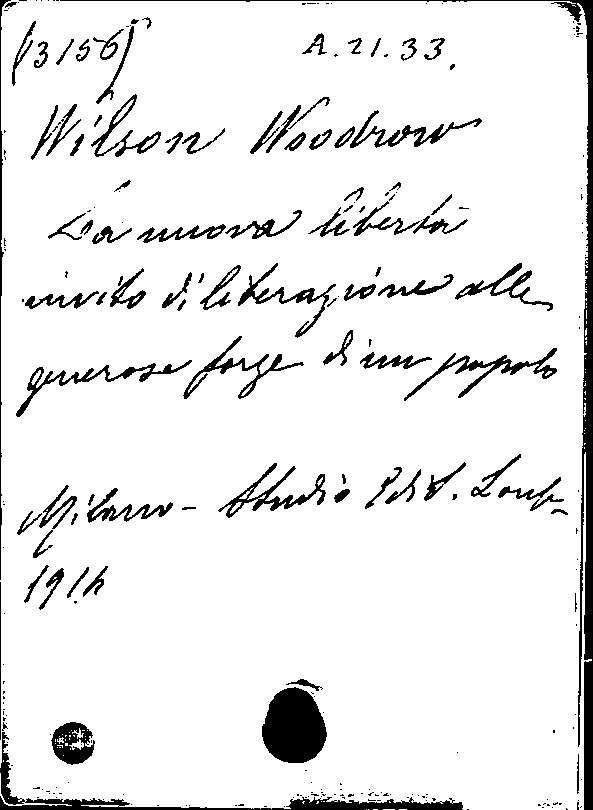 (3156) A.21.33.
Wilson Woodrow
La nuova libertà
invito di liberazione alle
generose forze di un popolo
Milano - Studio Edit. Lomb-
191